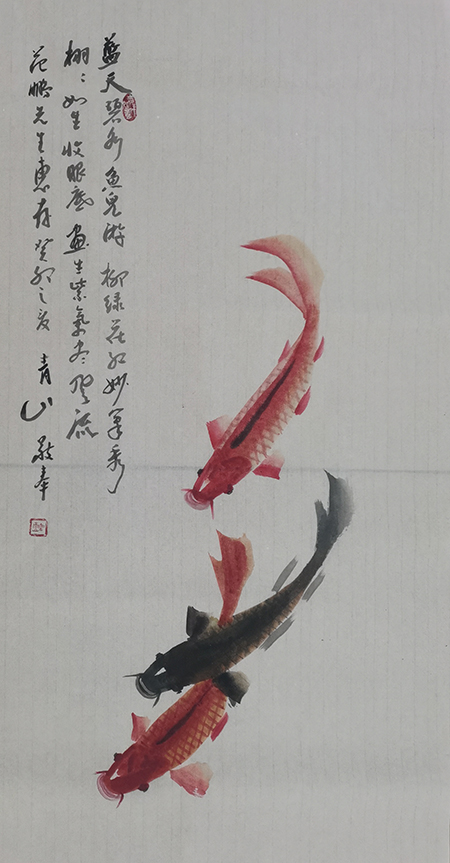 蓝天碧水鱼儿游柳绿花红妙笔秀
栩〻如生收眼底画生紫气尽风流
范鹏先生惠存癸卯之夏青山敬奉